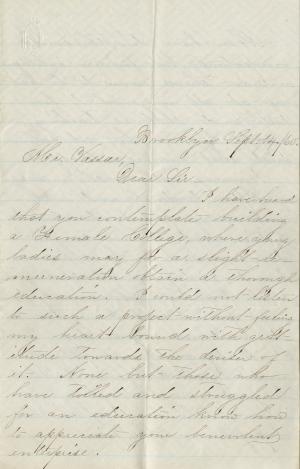 Brooklyn Sept. 14,/60.
Mr. Vassar,
Dear Sir.
I have heard
that you contemplate building
a Female College, where young
ladies may for a slight re-
muneration obtain a thorough
education. I could not listen
to such a project without feeling
my heart bound with grat-
itude towards the deviser of
it. None but those who
have toiled and struggled
for an education know how
to appreciate your benevolent
enterprise.